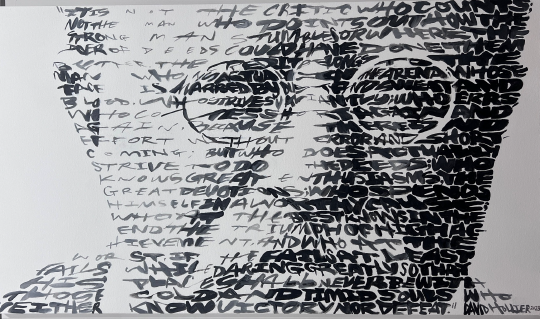 "IT IS NOT THE CRITIC WHO COUNTS
NOT THE MAN WHO POINTS OUT HOW THE
STRONG MAN STUMBLES OR WHERE THE
DOER OF DEEDS COULD HAVE DONE THEM
BETTER THE
MAN WHO ACTUALLY ARENA, WHOSE
IS MARRED BY
BLOOD. WHO STRIVES WHO ERRS
WHO
AGAIN BECAUSE
EFFORT WITHOUT ERROR AND
COMING; BUT WHO DOES
STRIVE TO DO THE DEEDS;
KNOWS GREAT ENTHUSIASMS,
GREAT DEVOTIONS; WHO SPENDS
HIMSELF IN A WORTHY
WHO AT THE BEST KNOWS IN THE
END THE TRIUMPH OF HIGH
ACHIEVEMENT, AND WHO AT
WORST IF HE FAILS AT LEAST
FAILS WHILE DARING GREATLY SO THAT
PLACE SHALL NEVER BE WITH
THOSE COLD AND TIMID SOULS WHO
NEITHER KNOW VICTORY NOR DEFEAT." DAVID HOLLIER